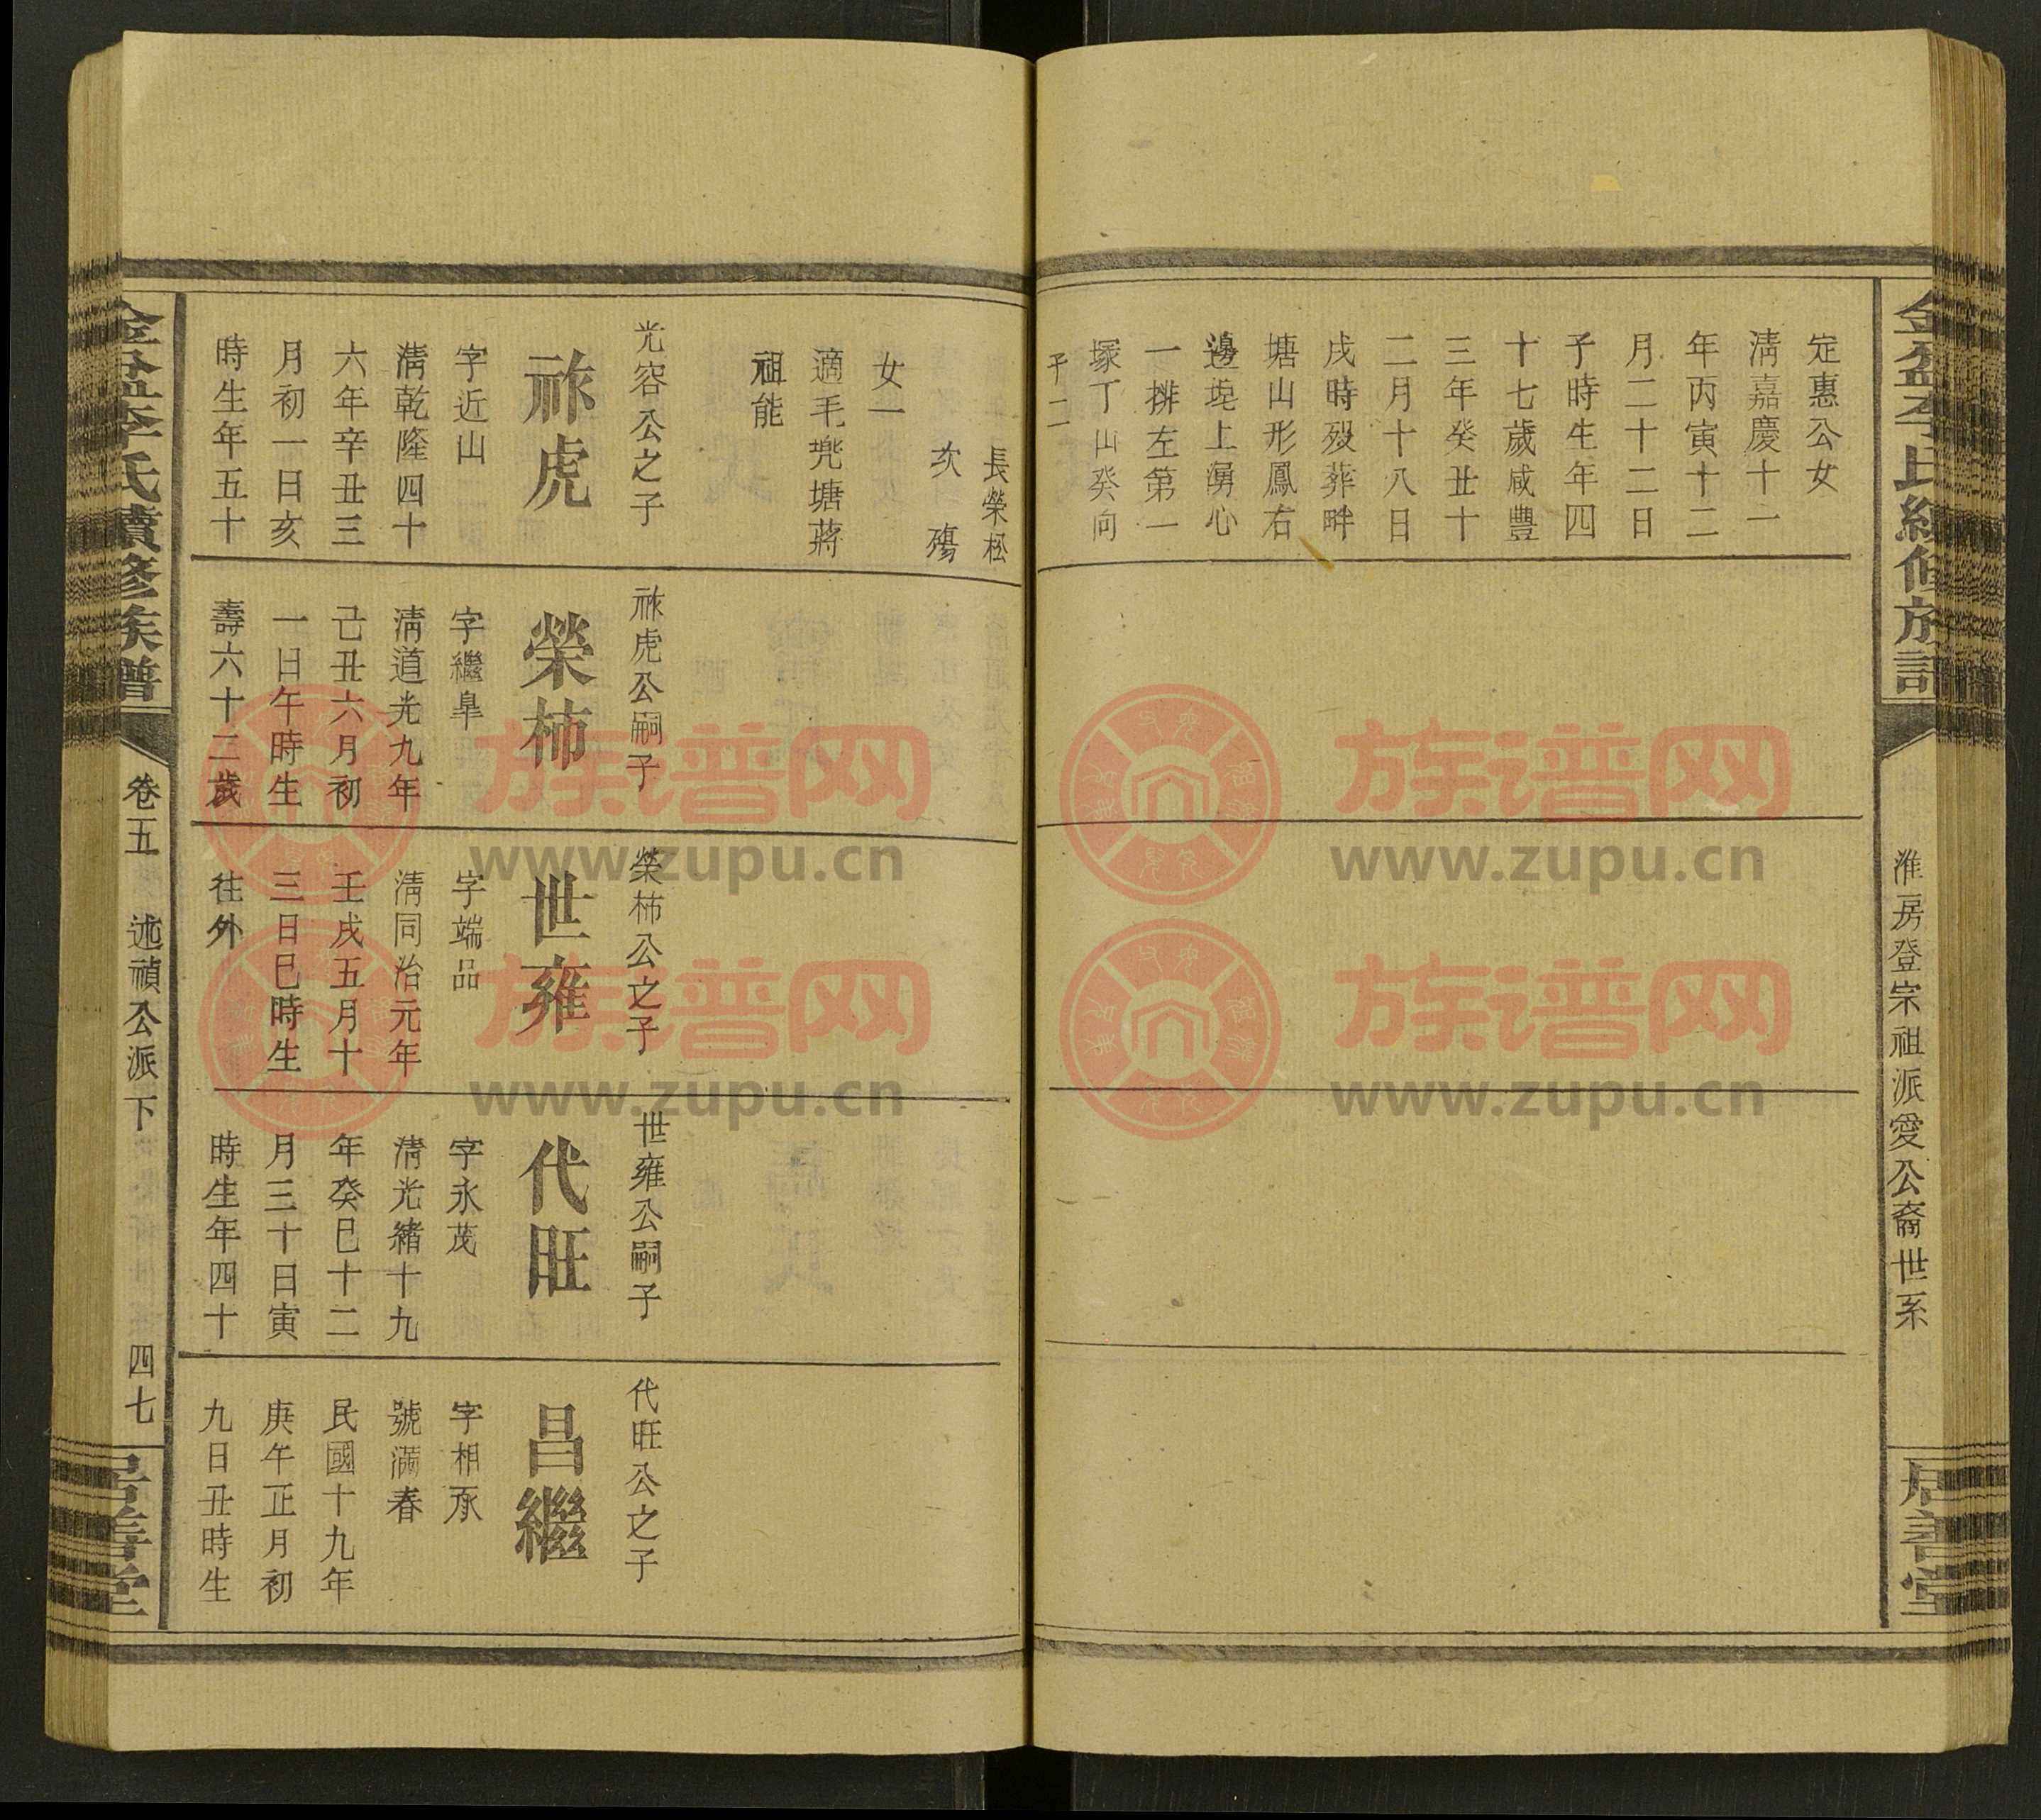 金盆李氏續修族譜
淮房登宗祖派愛公裔世系
居善堂
定惠公女
清嘉慶十一
年丙寅十二
月二十二日
子時生年四
十七歲咸豐
三年癸丑十
二月十八日
戌時歿葬畔
塘山形鳳右
邊堍上湧心
一排左第一
塚丁山癸向
子二
長榮松
次殤
女一
適毛兠塘蔣
祖能
光容公之子
祚虎
字近山
清乾隆四十
六年辛丑三
月初一日亥
時生年五十
祚虎公嗣子
榮柿
字繼皐
清道光九年
己丑六月初
一日午時生
壽六十二歲
榮柿公之子
世雍
字端品
清同治元年
壬戌五月十
三日巳時生
往外
世雍公嗣子
代旺
字永茂
清光緒十九
年癸巳十二
月三十日寅
時生年四十
代旺公之子
昌繼
字相承
號滿春
民國十九年
庚午正月初
九日丑時生
金盆李氏續修族譜
卷五
述禎公派下
四七
居善堂
族谱网
www.zupu.cn
族谱网
www.zupu.cn
族谱网
www.zupu.cn
族谱网
www.zupu.cn